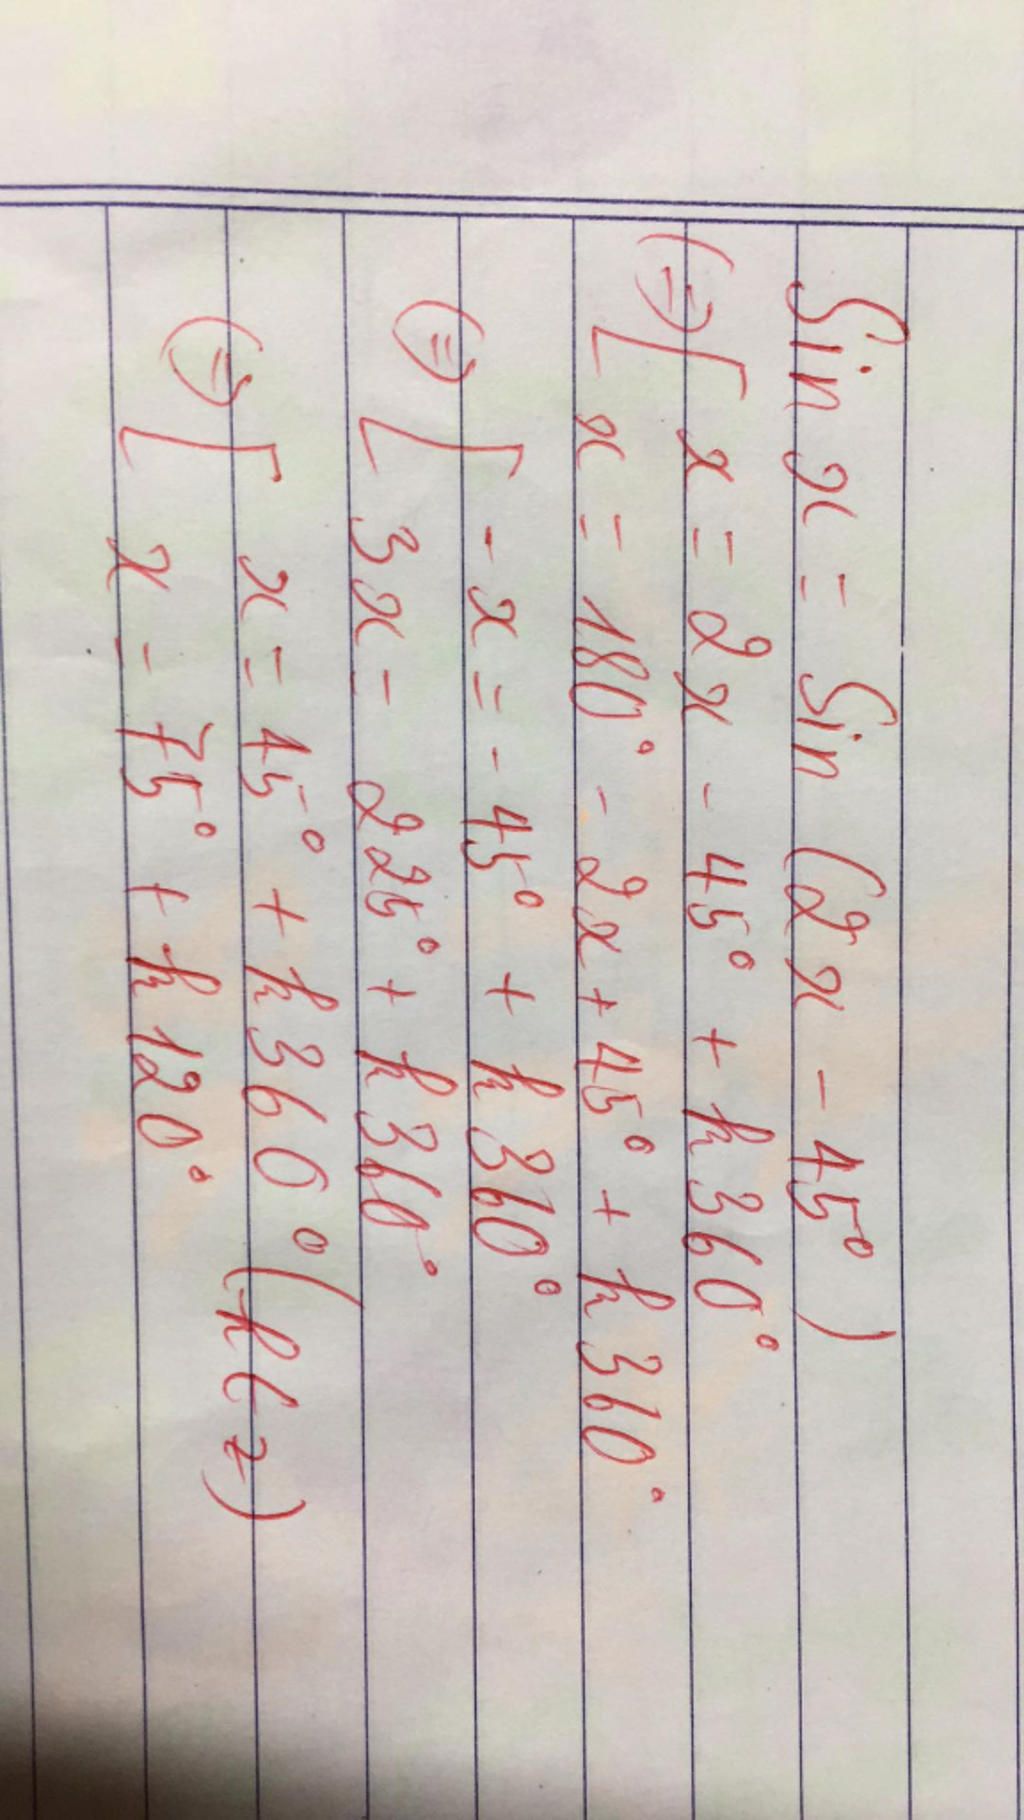 Sin x = Sin (2x - 45°)
(=) [ x = 2x - 45° + k360°
x = 180° - 2x + 45° + k360°
(=) [ - x = - 45° + k360°
3x = 225° + k360°
(=) [ x = 45° + k360° (k ∈ z)
x = 75° + k120°